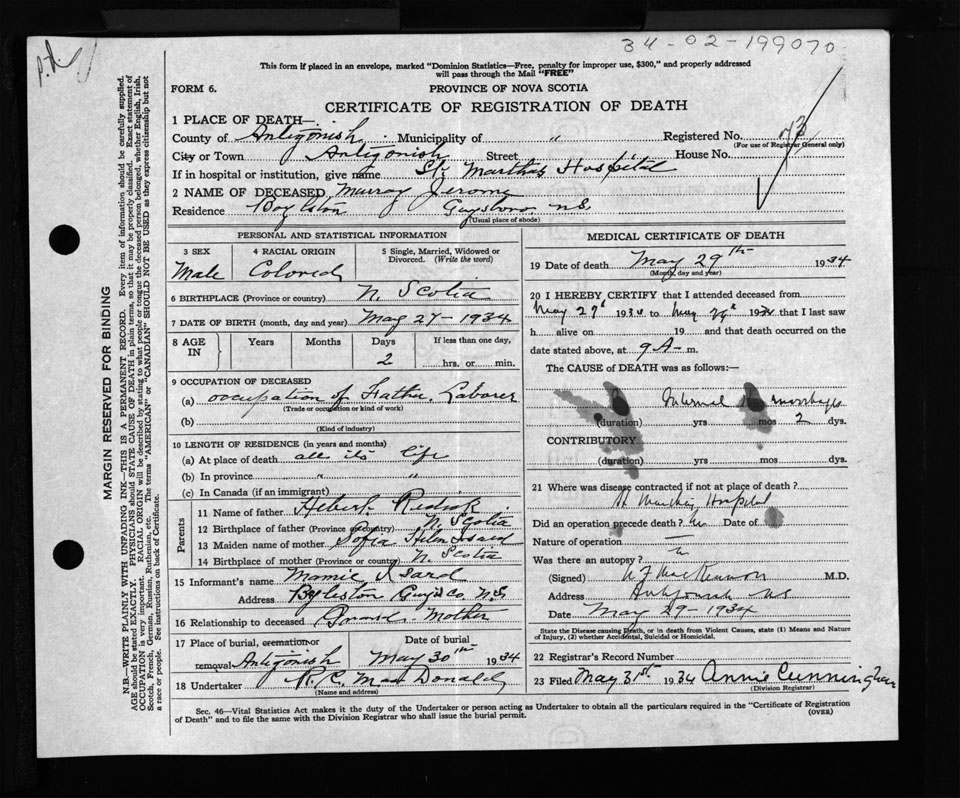 34-02-199070
This form if placed in an envelope, marked "Dominion Statistics—Free, penalty for improper use, $300," and properly addressed
will pass through the Mail "FREE"
FORM 6. PROVINCE OF NOVA SCOTIA
CERTIFICATE OF REGISTRATION OF DEATH
1 PLACE OF DEATH—
County of Antigonish Municipality of " Registered No.
(For use of Registrar General only)
City or Town Antigonish Street House No.
If in hospital or institution, give name St. Marthas Hospital
2 NAME OF DECEASED Murray Jerome
Residence Boylston Guysboro N.S.
(Usual place of abode)
PERSONAL AND STATISTICAL INFORMATION
3 SEX 4 RACIAL ORIGIN 5 Single, Married, Widowed or
Divorced. (Write the word)
Male Colored
6 BIRTHPLACE (Province or country) N. Scotia
7 DATE OF BIRTH (month, day and year) May 27-1934
8 AGE IN Years Months Days If less than one day,
2 hrs. or min.
9 OCCUPATION OF DECEASED
(a) occupation of Father Laborer
(Trade or occupation or kind of work)
(b)
(Kind of industry)
10 LENGTH OF RESIDENCE (in years and months)
(a) At place of death all its life
(b) In province " "
(c) In Canada (if an immigrant)
Parents
11 Name of father
12 Birthplace of father (Province or country) N. Scotia
13 Maiden name of mother Sofia Helen Isard
14 Birthplace of mother (Province or country) N. Scotia
15 Informant's name Mamie Isard
Address Boylston Guys Co. N.S.
16 Relationship to deceased Grand-Mother
17 Place of burial, cremation or Date of burial
removal Antigonish May 30th 1934
18 Undertaker MacDonald
(Name and address)
MEDICAL CERTIFICATE OF DEATH
19 Date of death May 29th 1934
(Month, day and year)
20 I HEREBY CERTIFY that I attended deceased from
May 27 1934 to May 29 1934 that I last saw
h alive on 19 and that death occurred on
date stated above, at 9 A-m.
The CAUSE of DEATH was as follows:—
Internal
(duration) yrs mos 2 dys.
CONTRIBUTORY
(duration) yrs. mos. dys.
21 Where was disease contracted if not at place of death?
St Marthas Hospital
Did an operation precede death? Date of
Nature of operation
Was there an autopsy?
(Signed) MacKinnon M.D.
Address Antigonish NS
Date May 29-1934
State the Disease causing Death, or in death from Violent Causes, state (1) Means and Nature
of Injury, (2) whether Accidental, Suicidal or Homicidal.
22 Registrar's Record Number
23 Filed May 31st 1934 Annie Cunningham
(Division Registrar)
Sec. 46—Vital Statistics Act makes it the duty of the Undertaker or person acting as Undertaker to obtain all the particulars required in the "Certificate of Registration
of Death" and to file the same with the Division Registrar who shall issue the burial permit. (OVER)
MARGIN RESERVED FOR BINDING
N.B.—WRITE PLAINLY WITH UNFADING INK—THIS IS A PERMANENT RECORD. Every item of information should be carefully supplied.
AGE should be stated EXACTLY. PHYSICIANS should STATE CAUSE OF DEATH in plain terms, so that it may be properly classified. Exact statement of
OCCUPATION is very important. RACIAL ORIGIN will be described by stating to what people or tongue the deceased person belonged, whether English, Irish,
Scotch, French, German, Russian, Ruthenian, etc. The terms "AMERICAN" or "CANADIAN" SHOULD NOT BE USED as they express citizenship but not
a race or people. See instructions on back of Certificate.